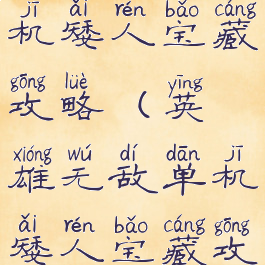 jī ǎi rén bǎo cáng
机矮人宝藏
gōng lüè yīng
攻略（英
xióng wú dí dān jī
雄无敌单机
ǎi rén bǎo cáng gōng
矮人宝藏攻